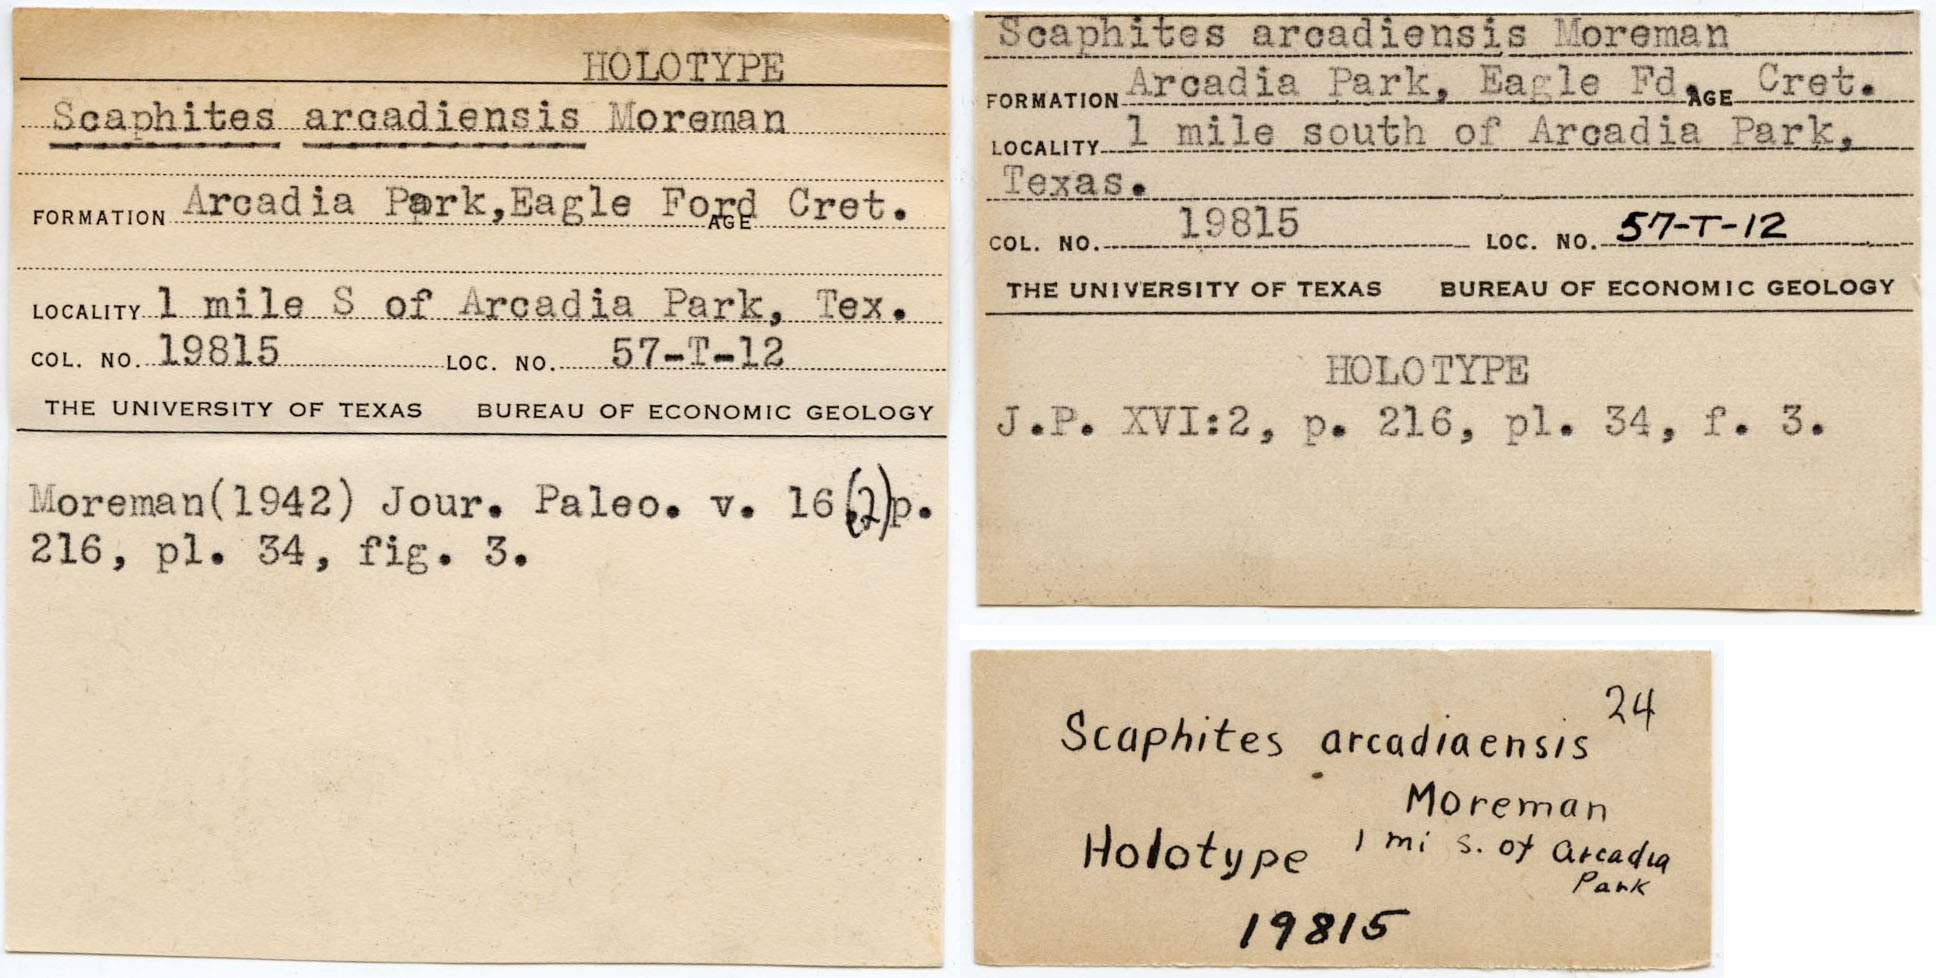 HOLOTYPE
Scaphites arcadiensis Moreman
FORMATION Arcadia Park, Eagle Ford AGE Cret.
LOCALITY 1 mile S of Arcadia Park, Tex.
COL. NO. 19815 LOC. NO. 57-T-12
THE UNIVERSITY OF TEXAS BUREAU OF ECONOMIC GEOLOGY
Moreman(1942) Jour. Paleo. v. 16(2)p.
216, pl. 34, fig. 3.
Scaphites arcadiensis Moreman
FORMATION Arcadia Park, Eagle Fd. AGE Cret.
LOCALITY 1 mile south of Arcadia Park,
Texas.
COL. NO. 19815 LOC. NO. 57-T-12
THE UNIVERSITY OF TEXAS BUREAU OF ECONOMIC GEOLOGY
HOLOTYPE
J.P. XVI:2, p. 216, pl. 34, f. 3.
24
Scaphites arcadiaensis
Moreman
Holotype 1 mi s. of Arcadia
Park
19815